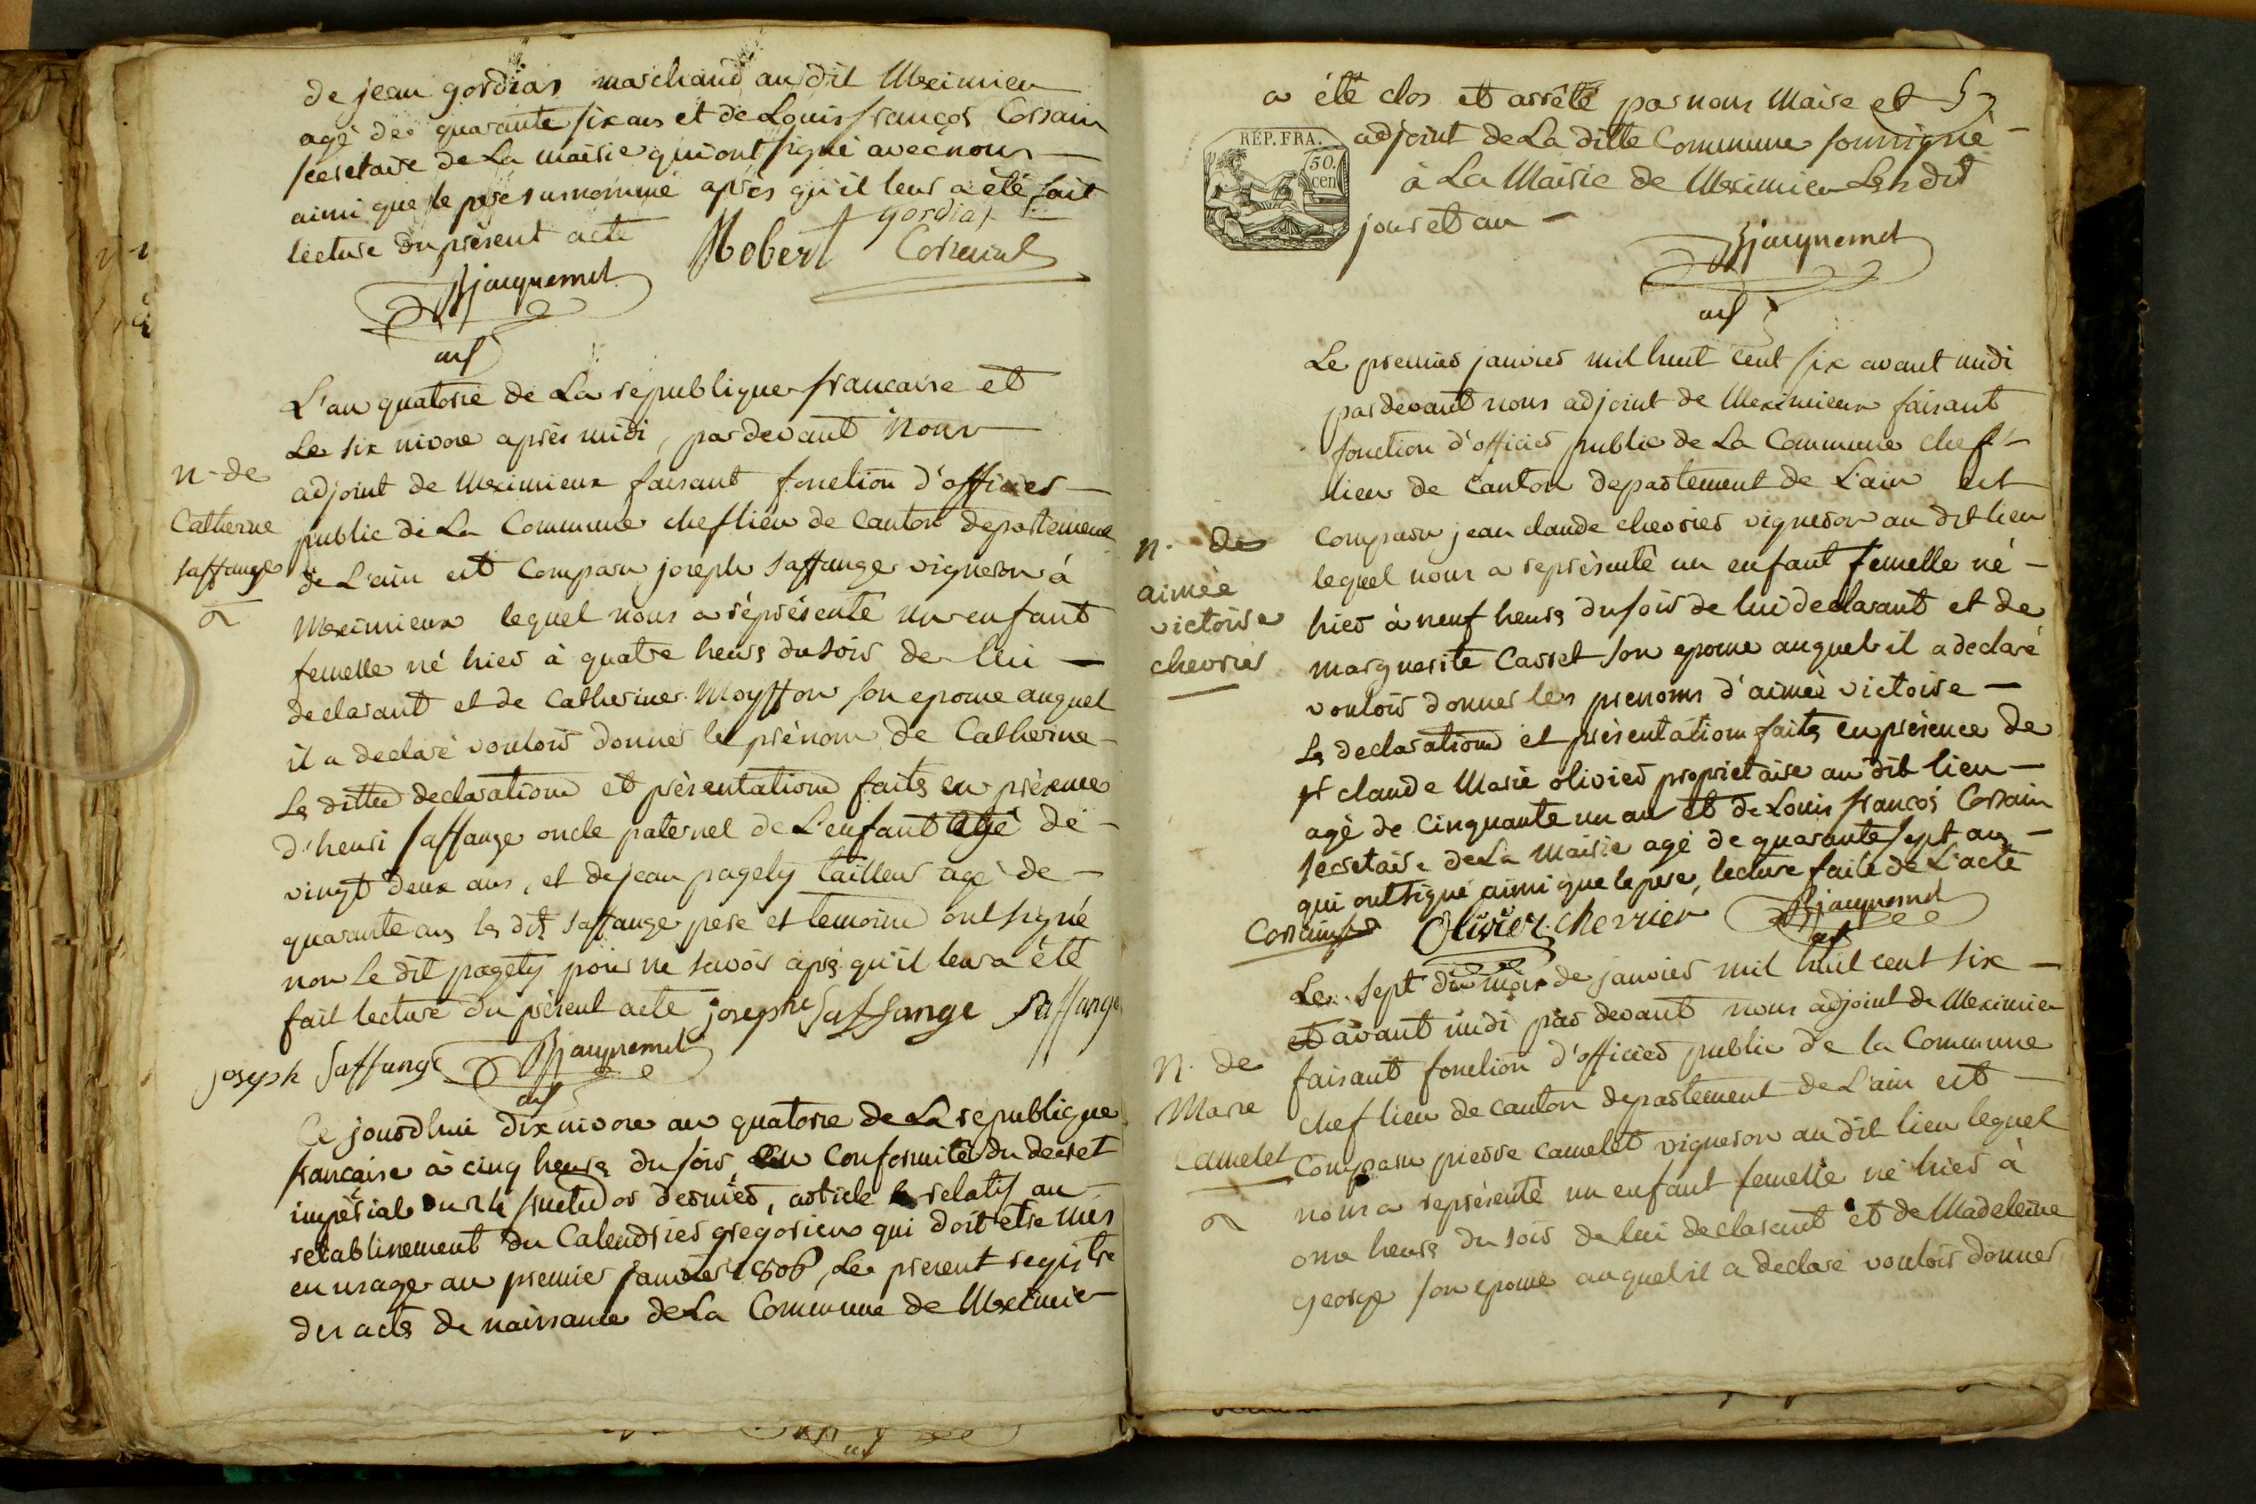 de jean gordian marchand au dit Meximieu
agé de quarante six ans et de Louis françois Corsain
secretaire de La mairie qui ont signé avec nous
ainsi que le pere surnommé après qu'il leur a été fait
lecture du présent acte
gordian
Robert
Corsain
Bjacquemet
adj
L'an quatorze de La république francaise et
Le six nivose après midi, pardevant Nous
adjoint de Meximieux faisant fonction d'officier
public de La Commune chef lieu de Canton departement
de L'ain est Comparu joseph saffange vigneron à
Meximieux lequel nous a réprésenté un enfant
femelle né hier à quatre heurs du soir de lui
declarant et de Catherine Moyffon son epouse auquel
il a declaré vouloir donner le prénom de Catherine
n. de
Catherine
saffange
Les dittes declaration et présentation faits en présence
d'henri saffange oncle paternel de L'enfant agé de
vingt deux ans, et de jean pagety tailleur agé de
quarante ans les dits saffange pere et temoins ont signé
non Le dit pagety pour ne savoir après qu'il leur a été
fait lecture du présent acte josephe Saffange Saffange
joseph Saffange Bjacquemet
adj
Ce jourdhui dix nivose an quatorze de La republique
francaise à cinq heurs du soir, en Conformité du decret
impérial du 24 fructidor dernier, article relatif au
retablissement du Calendrier gregorien qui doit etre mis
en usage au premier janvier 1806, Le présent registre
des acts de naissance de La Commune de Meximieu
a été clos et arrêté par nous Maire et
57
adjoint de La ditte Commune soussigné
à La Mairie de Meximieu Les dit
jour et an
RÉP. FRA.
50.
cen
Bjacquemet
adj
Le premier janvier mil huit cent six avant midi
pardevant nous adjoint de Meximieux faisant
fonction d'officier public de La Commune chef
lieu de Canton departement de L'ain est
Comparu jean claude chevrier vigneron au dit lieu
lequel nous a représenté un enfant femelle né
hier à neuf heurs du soir de lui declarant et de
marguerite Casset son epouse auquel il a declaré
vouloir donner les prenoms d'aimée victoire
n. de
aimée
victoire
chevrier
Ls declaration et présentation faits en présence de
st claude Marie olivier proprietaire au dit lieu
agé de cinquante un an et de Louis françois Corsain
secretaire de La Mairie agé de quarante sept ans
qui ont signé ainsi que le pere, lecture faite de L'acte
Corsain Olivier. Chevrier Bjacquemet
adj
Le sept du mois de janvier mil huit cent six
et avant midi par devant nous adjoint de Meximieu
faisant fonction d'officier public de la Commune
chef lieu de canton departement de L'ain est
Comparu pierre camelet vigneron au dit lieu lequel
nous a représenté un enfant femelle né hier à
onze heurs du soir de lui declarant et de Madeleine
george son epouse auquel il a declaré vouloir donner
n. de
Marie
Camelet